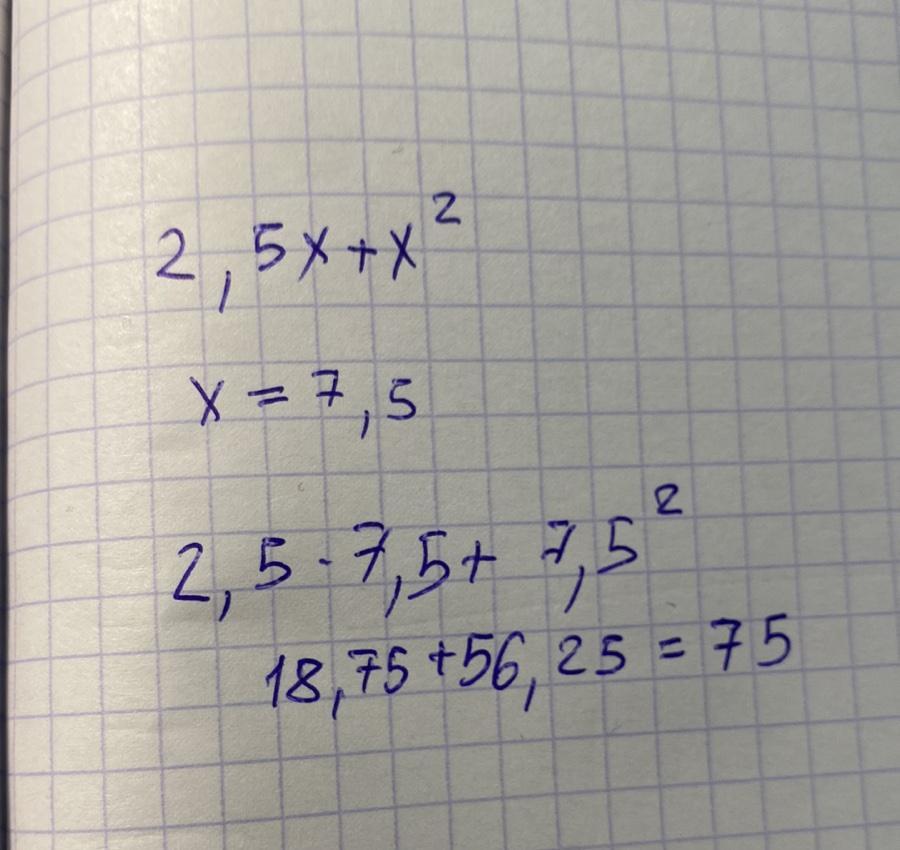 2,5x+x²
x=7,5
2,5·7,5+7,5²
18,75+56,25=75